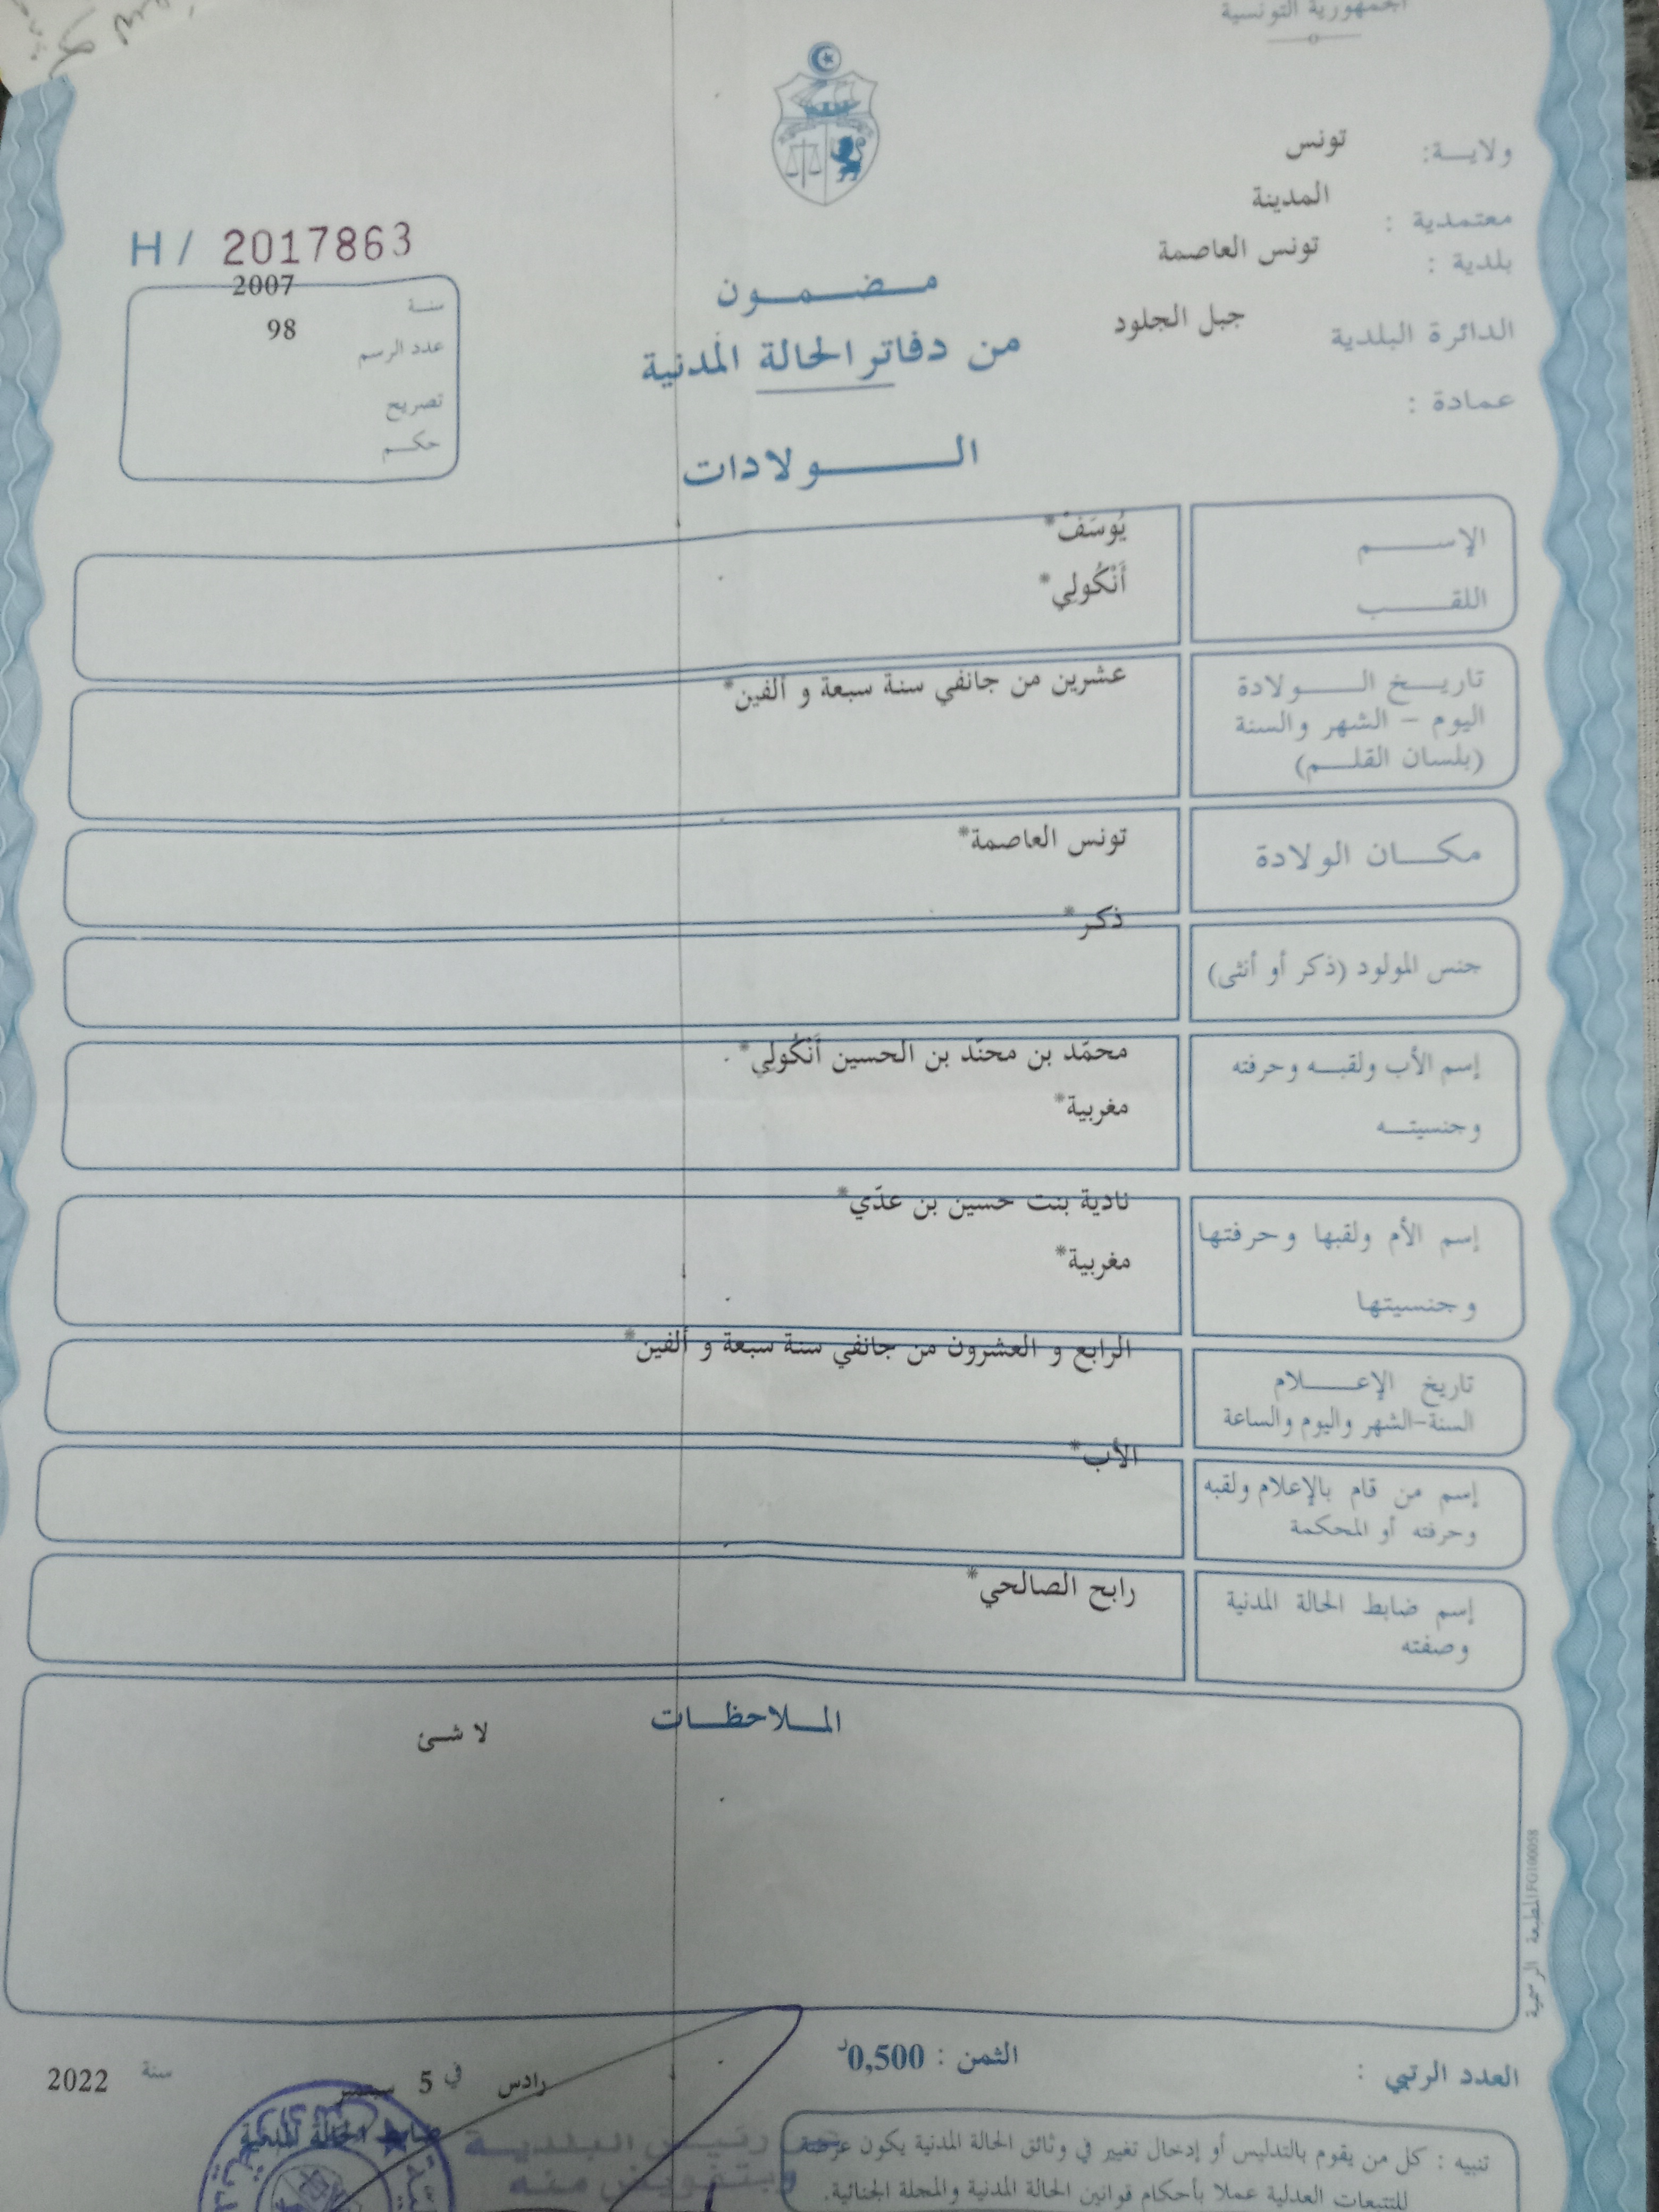 الجمهورية التونسية
ولايـــة: تونس
معتمدية : المدينة
بلدية : تونس العاصمة
الدائرة البلدية جبل الجلود
عمادة :
H / 2017863
سنة 2007
عدد الرسم 98
تصريح
حكم
مضمون
من دفاتر الحالة المدنية
الولادات
الإسم يُوسَفْ*
اللقب أَنْكُولِي*
تاريخ الولادة عشرين من جانفي سنة سبعة و ألفين*
اليوم - الشهر والسنة
(بلسان القلم)
مكان الولادة تونس العاصمة*
جنس المولود (ذكر أو أنثى) ذكر*
إسم الأب ولقبه وحرفته محمّد بن محنّد بن الحسين أَنْكُولِي*
وجنسيته مغربية*
إسم الأم ولقبها وحرفتها نادية بنت حسين بن عدّي*
وجنسيتها مغربية*
تاريخ الإعلام الرابع و العشرون من جانفي سنة سبعة و ألفين*
السنة-الشهر واليوم والساعة
إسم من قام بالإعلام ولقبه الأب*
وحرفته أو المحكمة
إسم ضابط الحالة المدنية رابح الصالحي*
وصفته
الملاحظات
لا شئ
المطبعة الرسمية
العدد الرتبي :
الثمن : 0,500د
رادس في 5 سبتمبر سنة 2022
ضابط الحالة المدنية
رئيس البلدية
وبتفويض منه
تنبيه : كل من يقوم بالتدليس أو إدخال تغيير في وثائق الحالة المدنية يكون عرضة
للتتبعات العدلية عملا بأحكام قوانين الحالة المدنية والمجلة الجنائية.